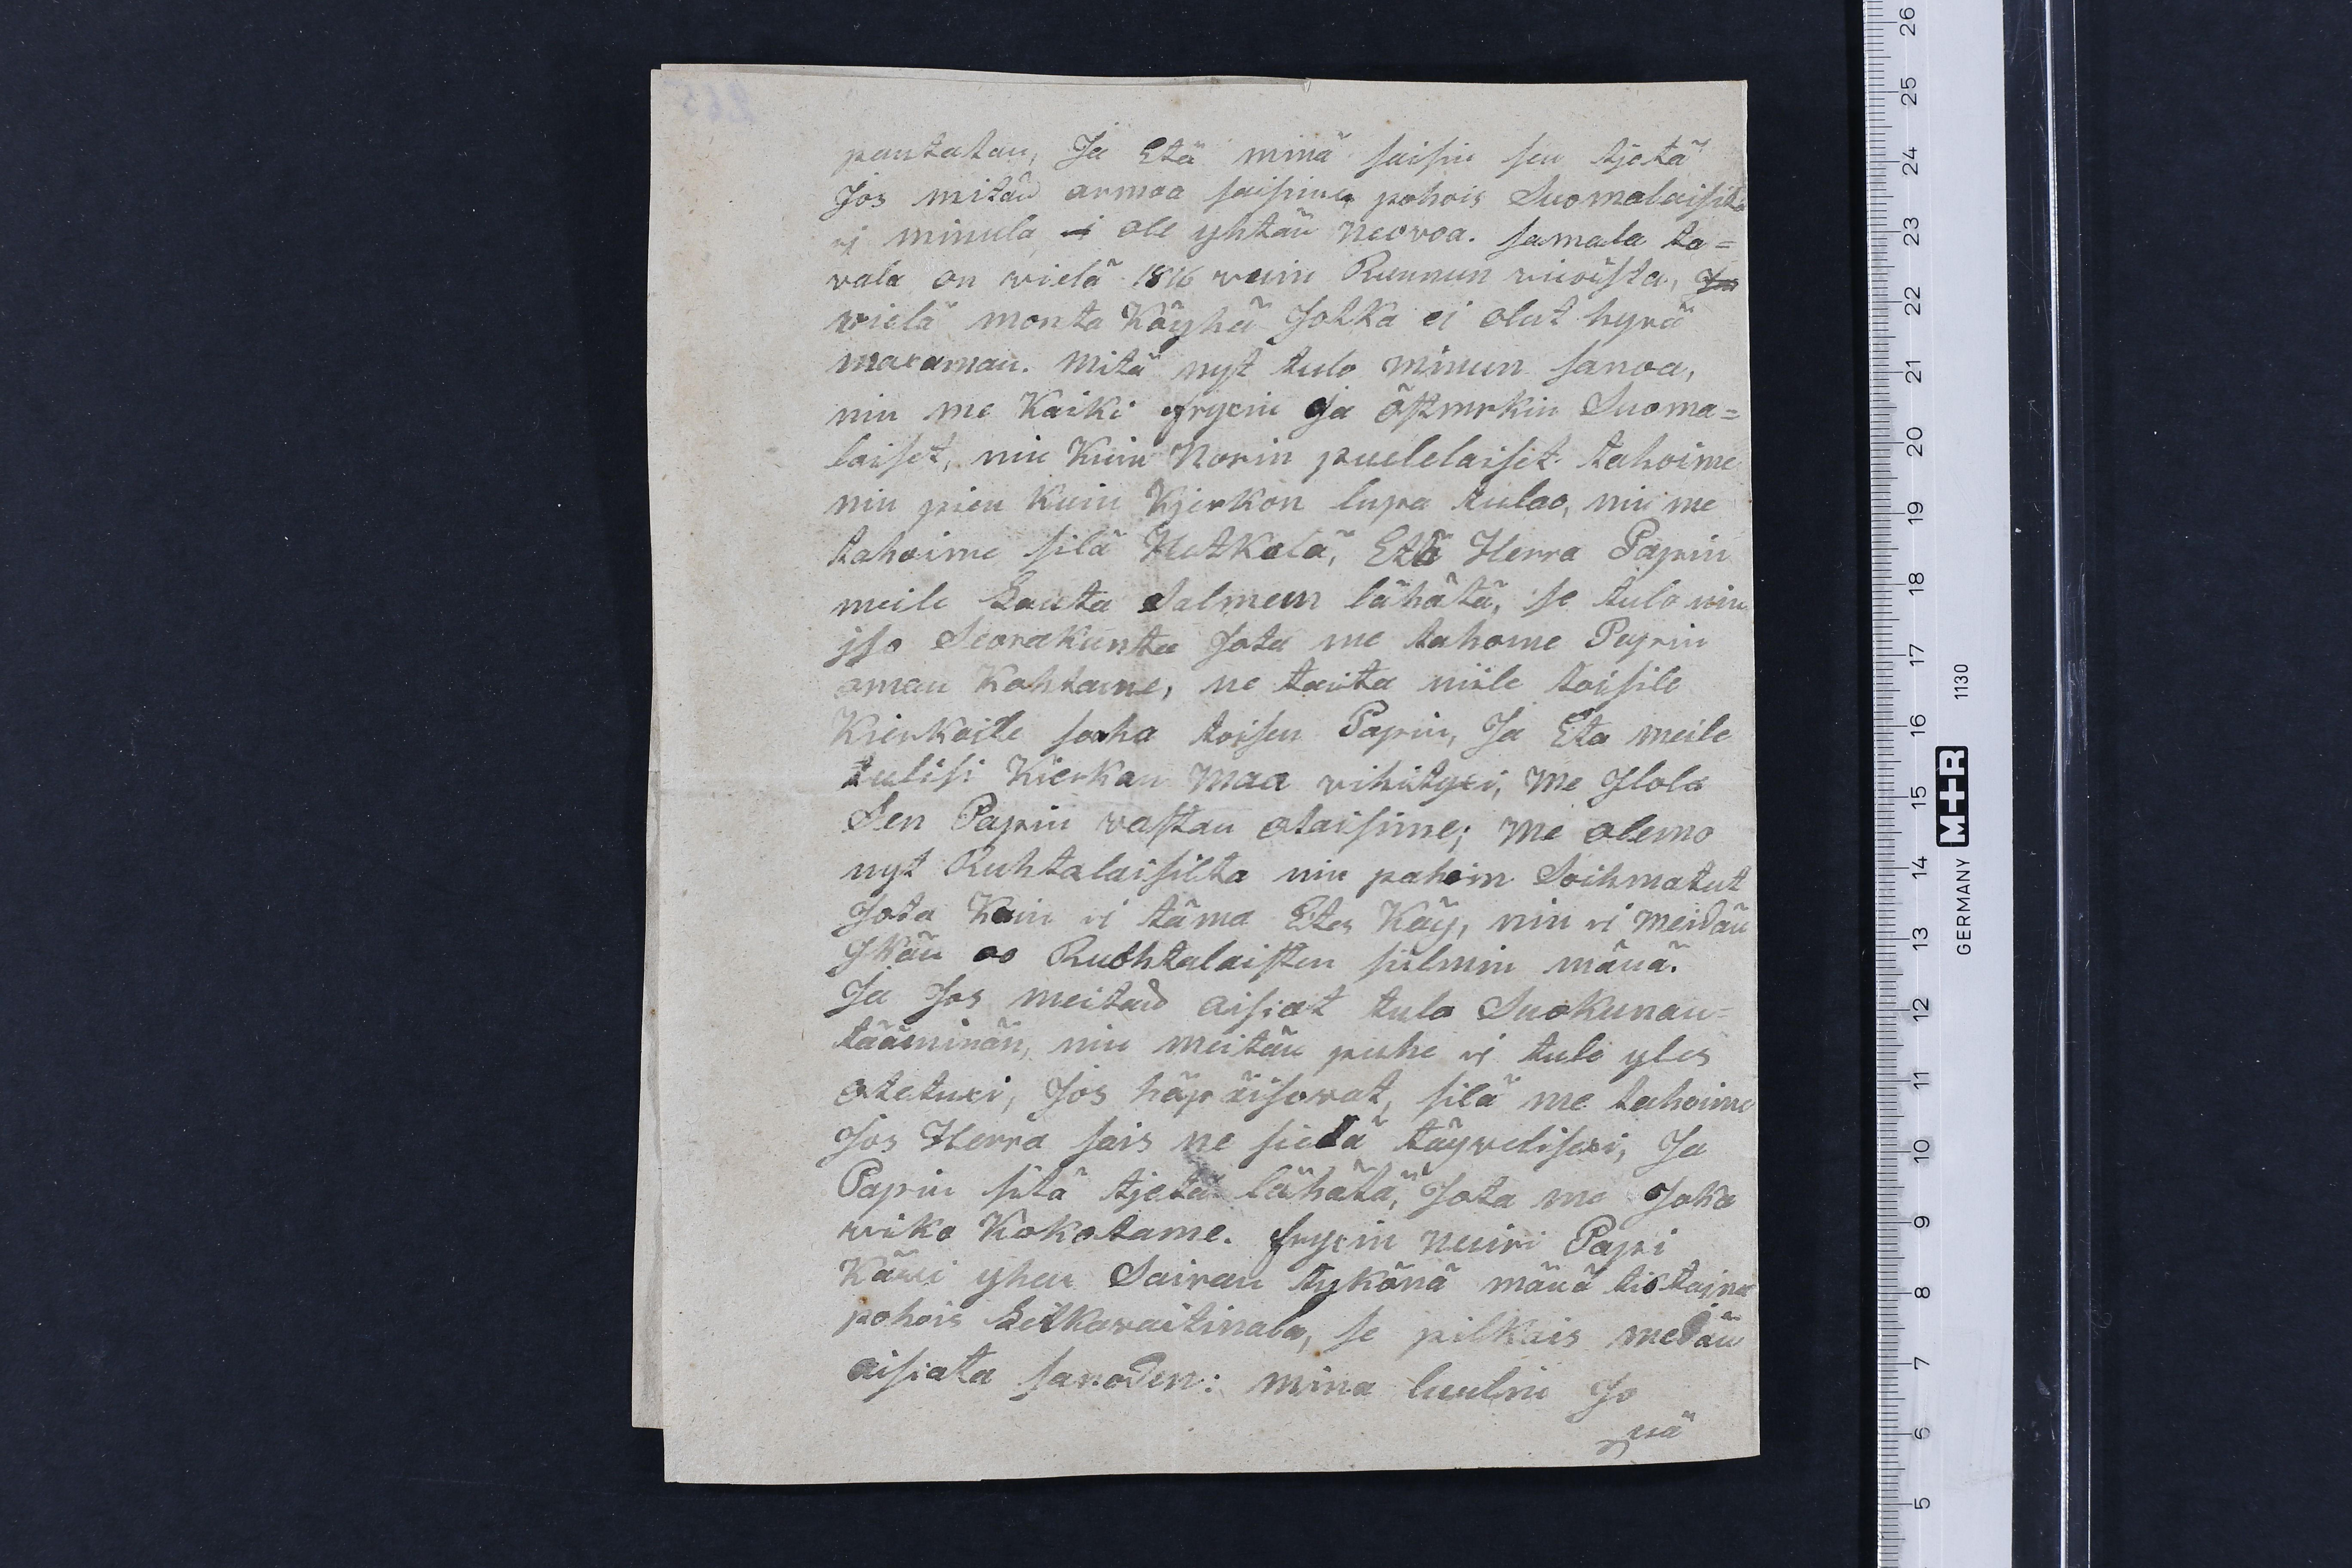 pantatan, Ja Etä minä saisin sen tjetä
Jos mitän armoa saisima pohois Suomalaisilta
ej minula ej ole yhtän Neovoa. samala ta=
vala on vielä 1816 vuin Ruunun vuoista, Jos
vielä monta Köyhä Jotka ei olut hyvä
maxaman. mitä nyt tulo minun sanoa,
nin me Kaiki fryxin Ja östmrkin Suoma=
laiset, nin Kuin Norin puolelaiset tahoime
nin pien Kuin Kjerkon lupa tulao, nin me
tahoime silä Hetkelä, Etä Herra Papin
meile Lauta Salmem lähätä, se tulo nin
jso Seorakunta Jota me tahome Papin
oman Kohtame, ne tauta niile toisile
Kierkoile saaha toisen Papin, Ja Eta meile
tulisi Kierkon maa vihityxi, me Jlola
Sen Papin vastan otaisime; me olemo
nyt Ruhtalaisilta nin pahoin Soihmatut
Jota Kuin ei täma Etes Käy, nin ei meidän
Jkän oo Ruohtalaisten silmin mänä.
Ja Jos meitän aisiat tulo Suokunan=
tääminän, nin meitän puhe ej tule yles
otetuxi, Jos häpäisovat, silä me tahoime
Jos Herra sais ne sielä täyvelisexi, Ja
Papin sitä tjetä lähätä, Jota me Joka
viko Kokotame. fryxin nuiri Papi
Käwi yhen Sairan tykönä mänä tiotajna
pohois Leitkavaitinala, se pilkais medän
aisiata sanoden: mina luulin Jo
nä
265
26
25
24
23
22
21
20
19
18
17
16
15
14
13
12
11
10
9
8
7
6
5
GERMANY M+R 1130